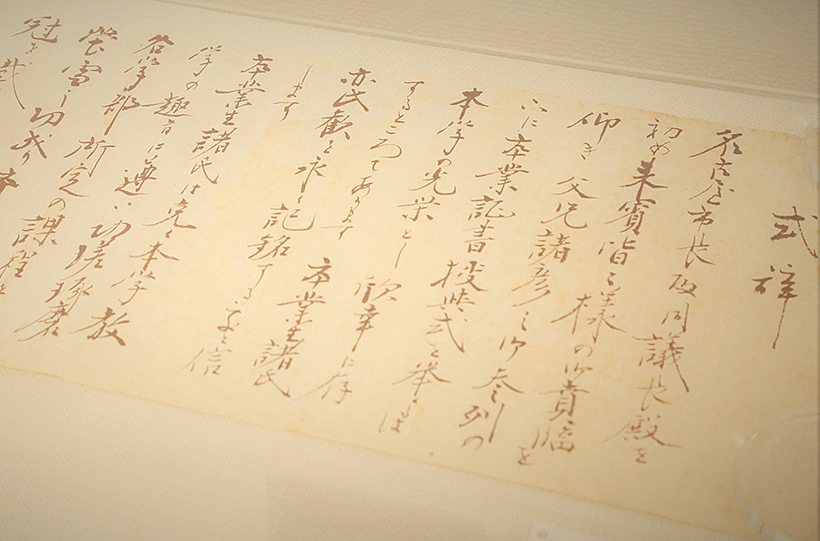 式辞
名古屋市長殿同議長殿を
初め来賓皆々様の御貴臨を
仰き父兄諸彦の御参列の
下に卒業証書授与式を挙くるは
本学の光栄とし欣幸に存
するところてあります
亦氏歓を永く記銘する
します
卒業生諸氏
卒業生諸氏は克く本学教
学の趣旨に遵い切磋琢磨
各学部所定の課程を
蛍雪之功成り
冠を戴